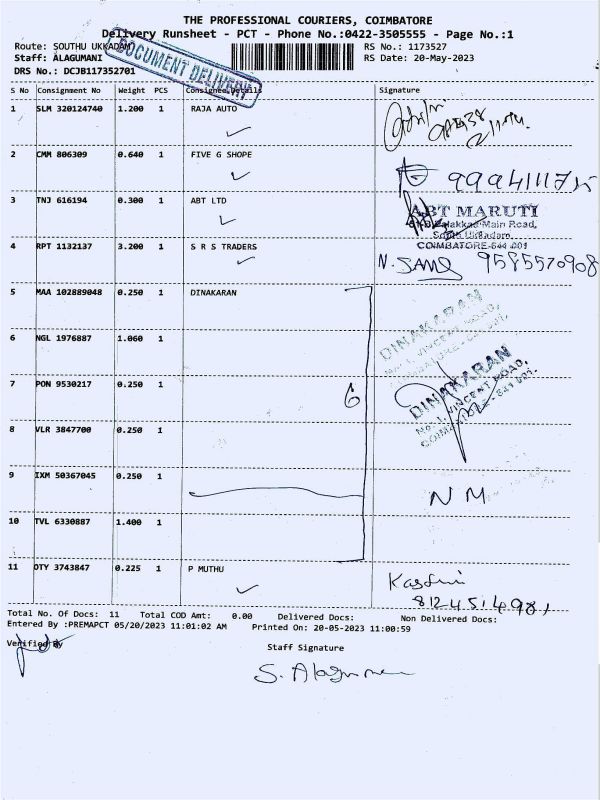 THE PROFESSIONAL COURIERS, COIMBATORE
Delivery Runsheet - PCT - Phone No.:0422-3505555 - Page No.:1
Route: SOUTHU UKKADAM
RS No.: 1173527
Staff: ALAGUMANI
RS Date: 20-May-2023
DRS No.: DCJB117352701
DOCUMENT DELIVERY
S No Consignment No Weight PCS Consignee Details Signature
1 SLM 320124740 1.200 1 RAJA AUTO
2 CMM 806309 0.640 1 FIVE G SHOPE
3 TNJ 616194 0.300 1 ABT LTD
ABT MARUTI
Palakkad Main Road,
South Ukkadam,
COIMBATORE-641 001
4 RPT 1132137 3.200 1 S R S TRADERS
9585570908
5 MAA 102889048 0.250 1 DINAKARAN
DINAKARAN
6 NGL 1976887 1.060 1
7 PON 9530217 0.250 1 6
DINAKARAN
No. 1, VINCENT ROAD,
8 VLR 3847700 0.250 1
9 IXM 50367045 0.250 1 NM
10 TVL 6330887 1.400 1
11 OTY 3743847 0.225 1 P MUTHU
Total No. Of Docs: 11 Total COD Amt: 0.00 Delivered Docs: Non Delivered Docs:
Entered By :PREMAPCT 05/20/2023 11:01:02 AM Printed On: 20-05-2023 11:00:59
Verified By
Staff Signature